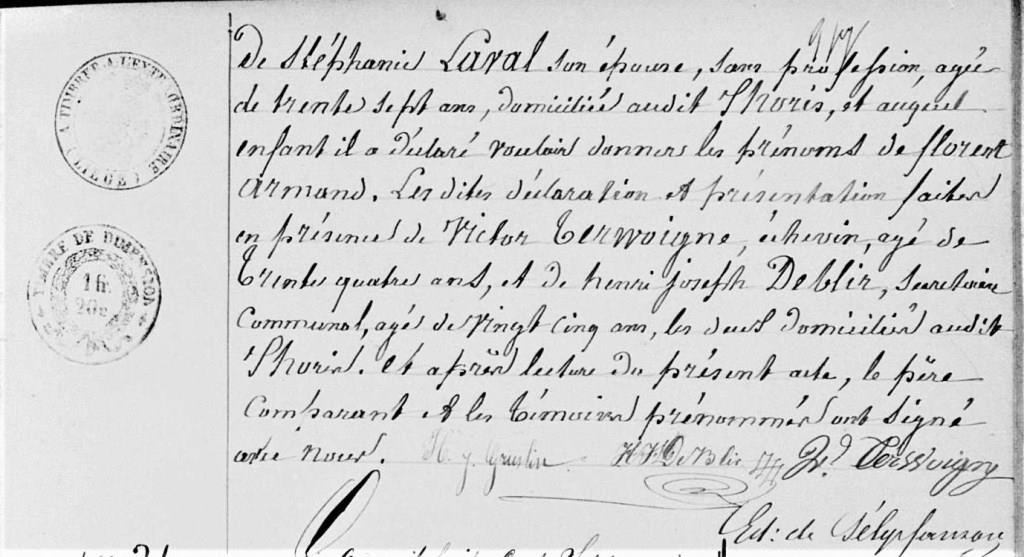 A TIMBRER A L'EXTRAORDINAIRE
( LIEGE )
TIMBRE DE DIMENSION
1 fr
20c
de Stéphanie Laval son épouse, sans profession, agée
de trente sept ans, domiciliée audit Thoris, et auquel
enfant il a déclaré vouloir donner les prénoms de florent
armand. Les dites déclaration et présentation faites
en présence de Victor Terwoigne, échevin, agé de
trente quatre ans, et de henri joseph Deblir, secretaire
Communal, agé de vingt cinq ans, les deux domiciliés audit
Thoris. Et après lecture du présent acte, le père
Comparant et les témoins prénommés ont signé
avec nous. H. j. H. J. Vr. Terwoigne
Ed: de Sélysfanson